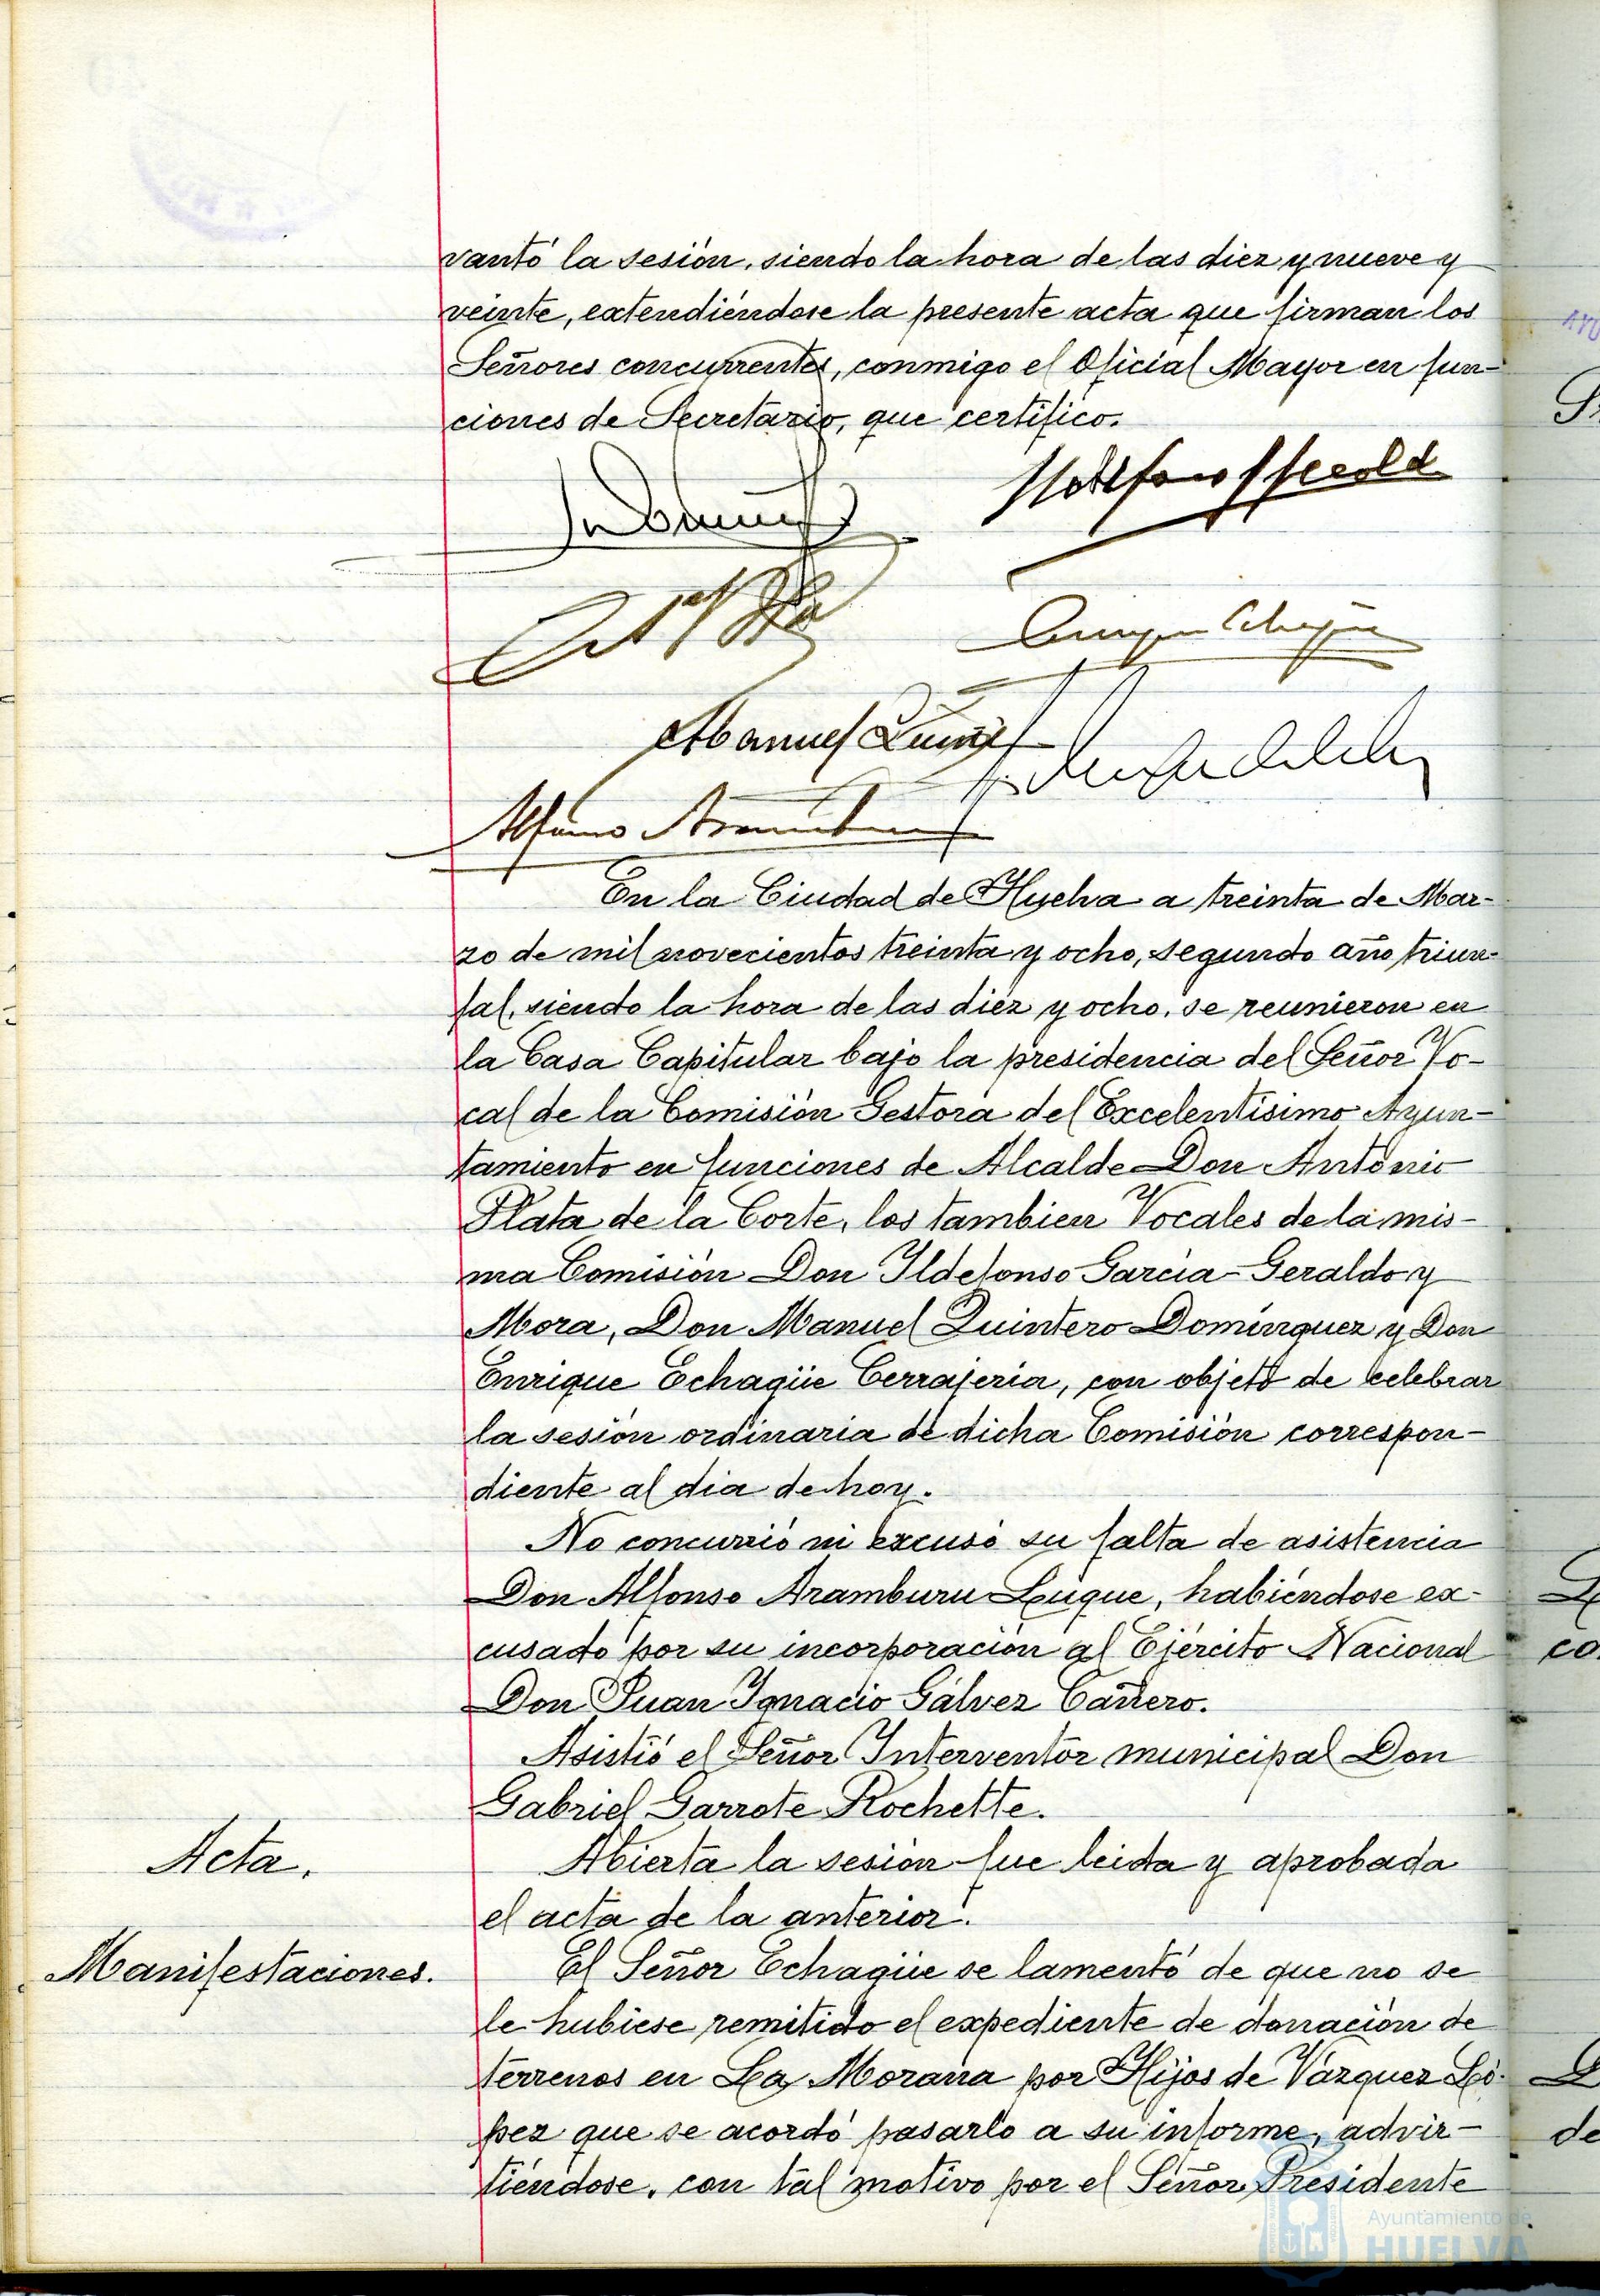 vantó la sesión, siendo la hora de las diez y nueve y
veinte, extendiéndose la presente acta que firman los
Señores concurrentes, conmigo el Oficial Mayor en fun-
ciones de Secretario, que certifico.
Manuel
Alfonso Aramburu
En la Ciudad de Huelva a treinta de Mar-
zo de mil novecientos treinta y ocho, segundo año triun-
fal, siendo la hora de las diez y ocho, se reunieron en
la Casa Capitular bajo la presidencia del Señor Vo-
cal de la Comisión Gestora del Excelentísimo Ayun-
tamiento en funciones de Alcalde Don Antonio
Plata de la Corte, los tambien Vocales de la mis-
ma Comisión Don Ildefonso García-Geraldo y
Mora, Don Manuel Quintero Domínguez y Don
Enrique Echagüe Cerrajería, con objeto de celebrar
la sesión ordinaria de dicha Comisión correspon-
diente al dia de hoy.
No concurrió ni excusó su falta de asistencia
Don Alfonso Aramburu Luque, habiéndose ex-
cusado por su incorporación al Ejército Nacional
Don Juan Ignacio Gálvez Cañero.
Asistió el Señor Interventor municipal Don
Gabriel Garrote Rochette.
Acta. Abierta la sesión fue leida y aprobada
el acta de la anterior.
Manifestaciones. El Señor Echagüe se lamentó de que no se
le hubiese remitido el expediente de donación de
terrenos en La Morana por Hijos de Vázquez Ló-
pez que se acordó pasarlo a su informe, advir-
tiéndose, con tal motivo por el Señor Presidente
Ayuntamiento de
HUELVA